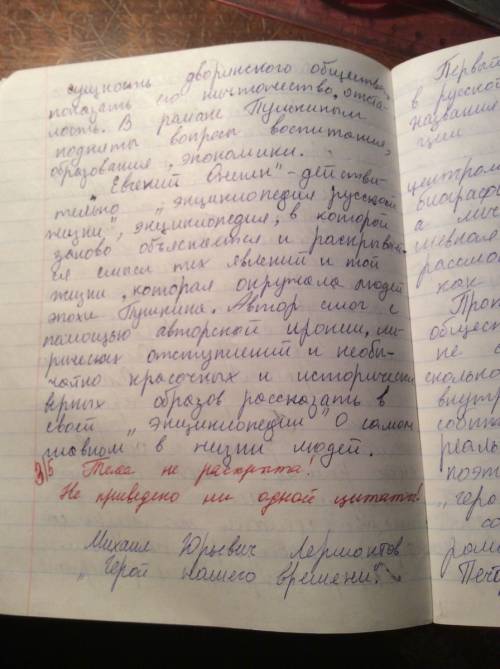 сущность дворянского общества,
показать его ничтожество, отста-
лость. В романе Пушкиным
подняты вопросы воспитания,
образования, экономики.
"Евгений Онегин" - действи-
тельно "энциклопедия русской
жизни", энциклопедия, в которой
заново объясняется и раскрывает-
ся смысл тех явлений и той
жизни, которая окружала людей
эпохи Пушкина. Автор смог с
помощью авторской иронии, ли-
рических отступлений и необы-
чайно красочных и исторически
верных образов рассказать в
своей "энциклопедии" о самом
главном в жизни людей.
3/5 Тема не раскрыта!
Не приведено ни одной цитаты!
Михаил Юрьевич Лермонтов
"Герой нашего времени".
Первый
в русской
названия
ции
центром
биограф
а лич
шевная
рассмо
как
Про
общест
не с
сколько
внутр
событи
реаль
поэт
"геро
со
рома
Печо